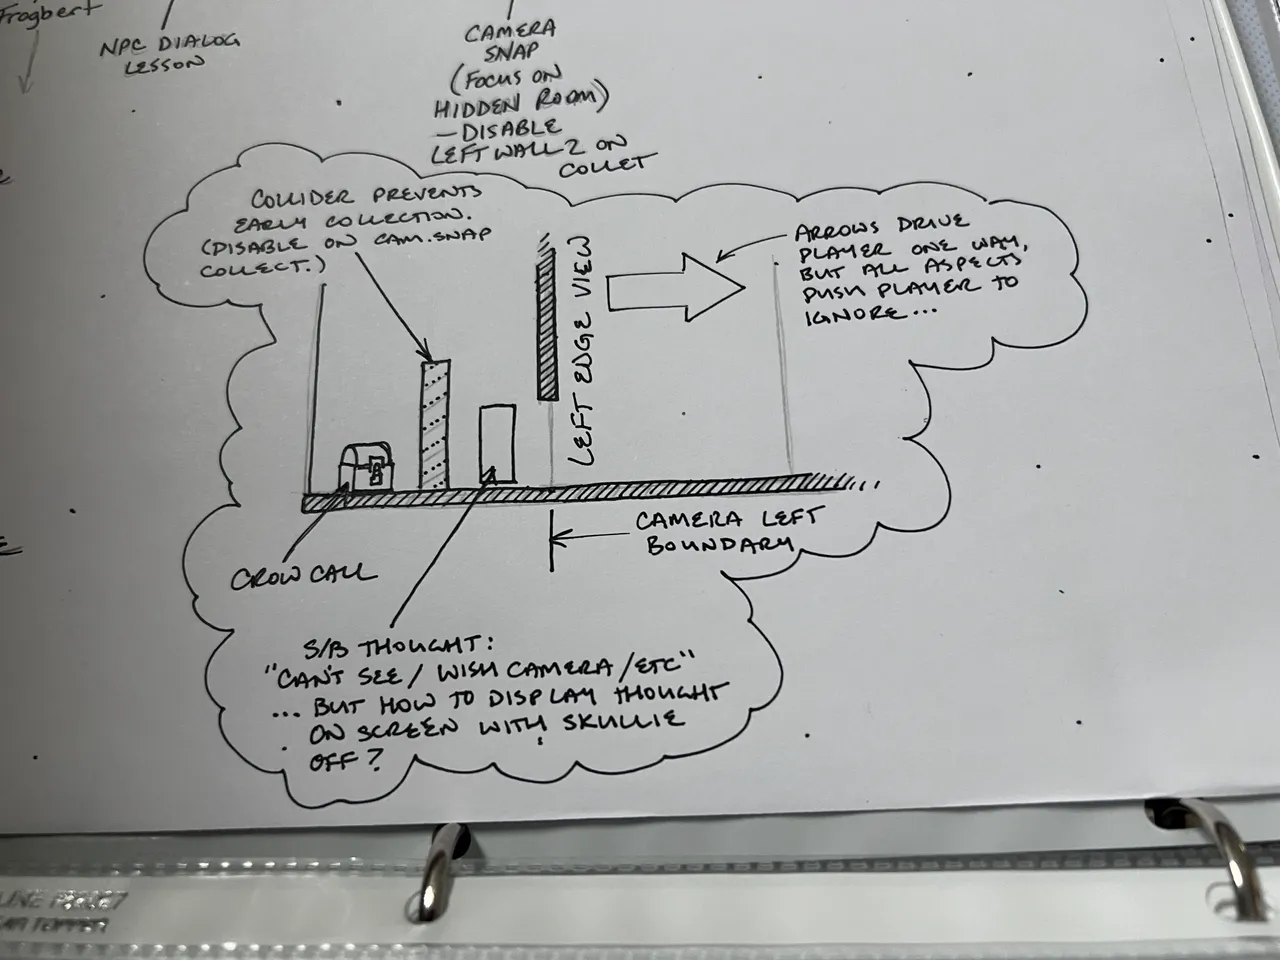 Frogbert
NPC DIALOG
LESSON
CAMERA
SNAP
(FOCUS ON
HIDDEN ROOM)
— DISABLE
LEFT WALL 2 ON
COLLET
COLLIDER PREVENTS
EARLY COLLECTION.
(DISABLE ON CAM.SNAP
COLLECT.)
LEFT EDGE VIEW
ARROWS DRIVE
PLAYER ONE WAY,
BUT ALL ASPECTS
PUSH PLAYER TO
IGNORE...
CAMERA LEFT
BOUNDARY
CROW CALL
S/B THOUGHT:
"CAN'T SEE / WISH CAMERA / ETC"
... BUT HOW TO DISPLAY THOUGHT
ON SCREEN WITH SKULLIE
OFF?